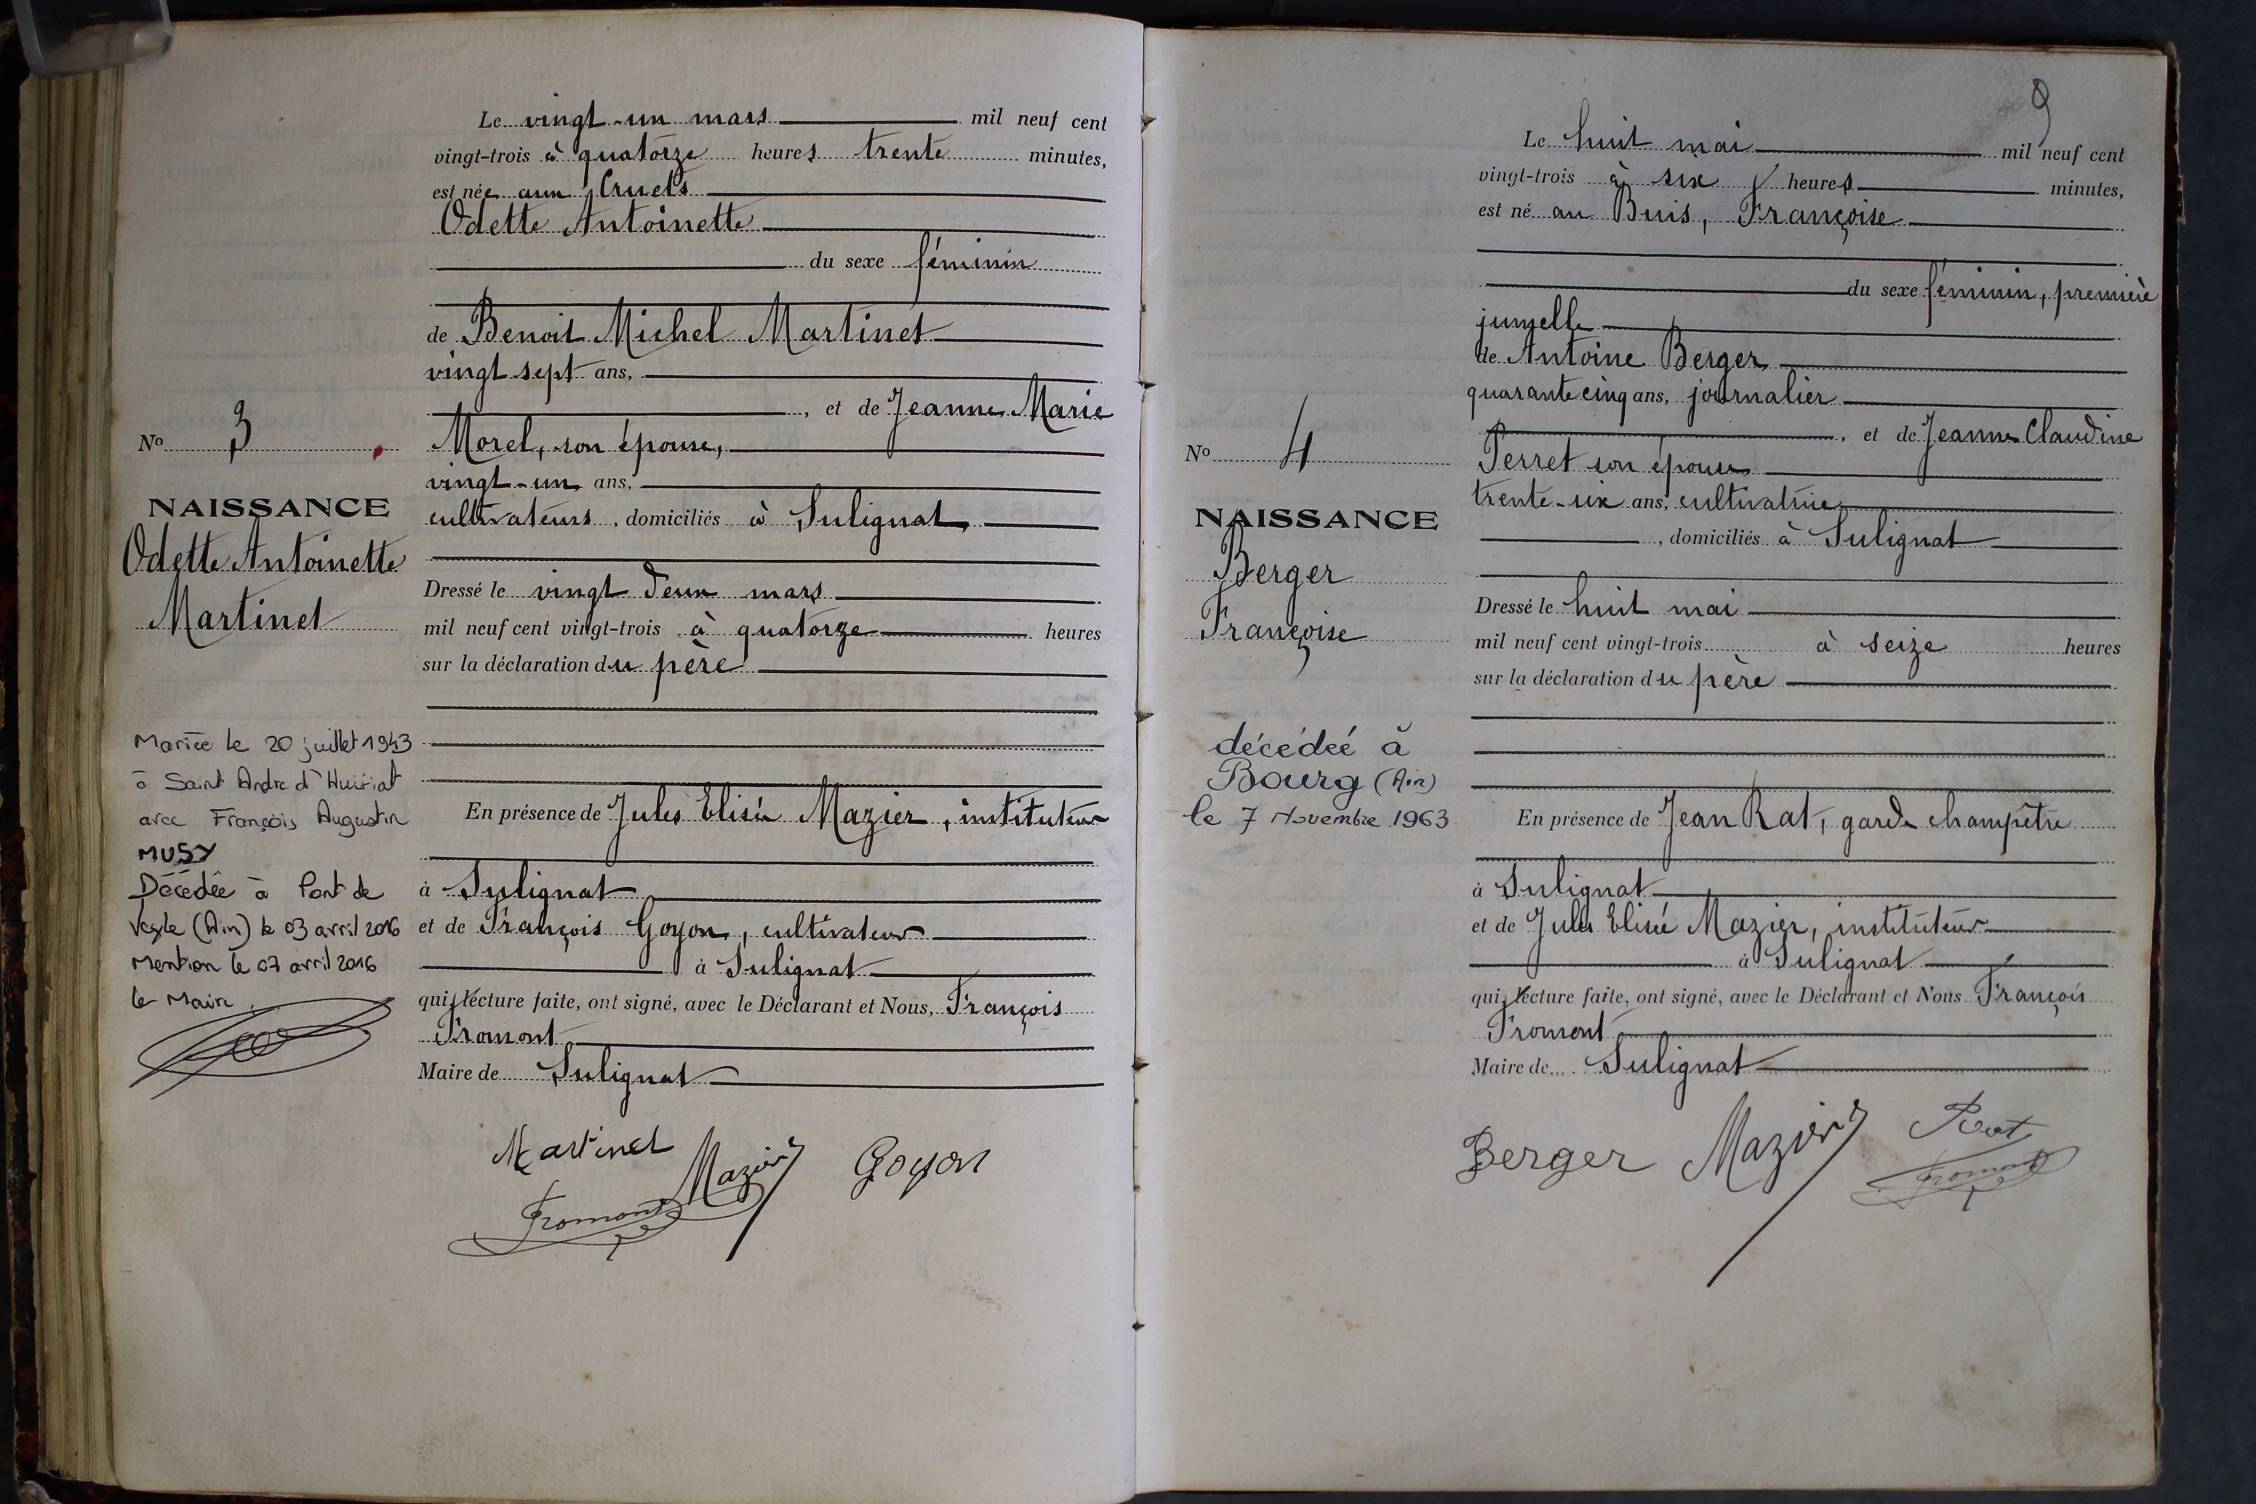 Le vingt-un mars mil neuf cent
vingt-trois à quatorze heures trente minutes,
est née aux Cruets
Odette Antoinette
du sexe féminin
de Benoit Michel Martinet
vingt sept ans,
, et de Jeanne Marie
Morel, son épouse,
vingt-un ans,
cultivateurs, domiciliés à Sulignat
Dressé le vingt deux mars
mil neuf cent vingt-trois à quatorze heures
sur la déclaration du père
En présence de Jules Elisée Mazier, instituteur
à Sulignat
et de François Goyon, cultivateur
à Sulignat
qui, lecture faite, ont signé, avec le Déclarant et Nous, François
Fromont
Maire de Sulignat
Martinet Mazier Goyon
Fromont
No 3
NAISSANCE
Odette Antoinette
Martinet
Mariée le 20 juillet 1943
à Saint André d'Huiriat
avec François Augustin
MUSY
Décédée à Pont de
Veyle (Ain) le 03 avril 2016
Mention le 07 avril 2016
le Maire.
9
Le huit mai mil neuf cent
vingt-trois à six heures minutes,
est né au Buis, Françoise
du sexe féminin, première
jumelle
de Antoine Berger
quarante cinq ans, journalier
, et de Jeanne Claudine
Perret son épouse
trente-six ans, cultivatrice
, domiciliés à Sulignat
Dressé le huit mai
mil neuf cent vingt-trois à seize heures
sur la déclaration du père
En présence de Jean Rat, garde champêtre
à Sulignat
et de Jules Elisée Mazier, instituteur
à Sulignat
qui, lecture faite, ont signé, avec le Déclarant et Nous François
Fromont
Maire de Sulignat
Berger Mazier Rat
Fromont
No 4
NAISSANCE
Berger
Françoise
décédée à
Bourg (Ain)
le 7 Novembre 1963